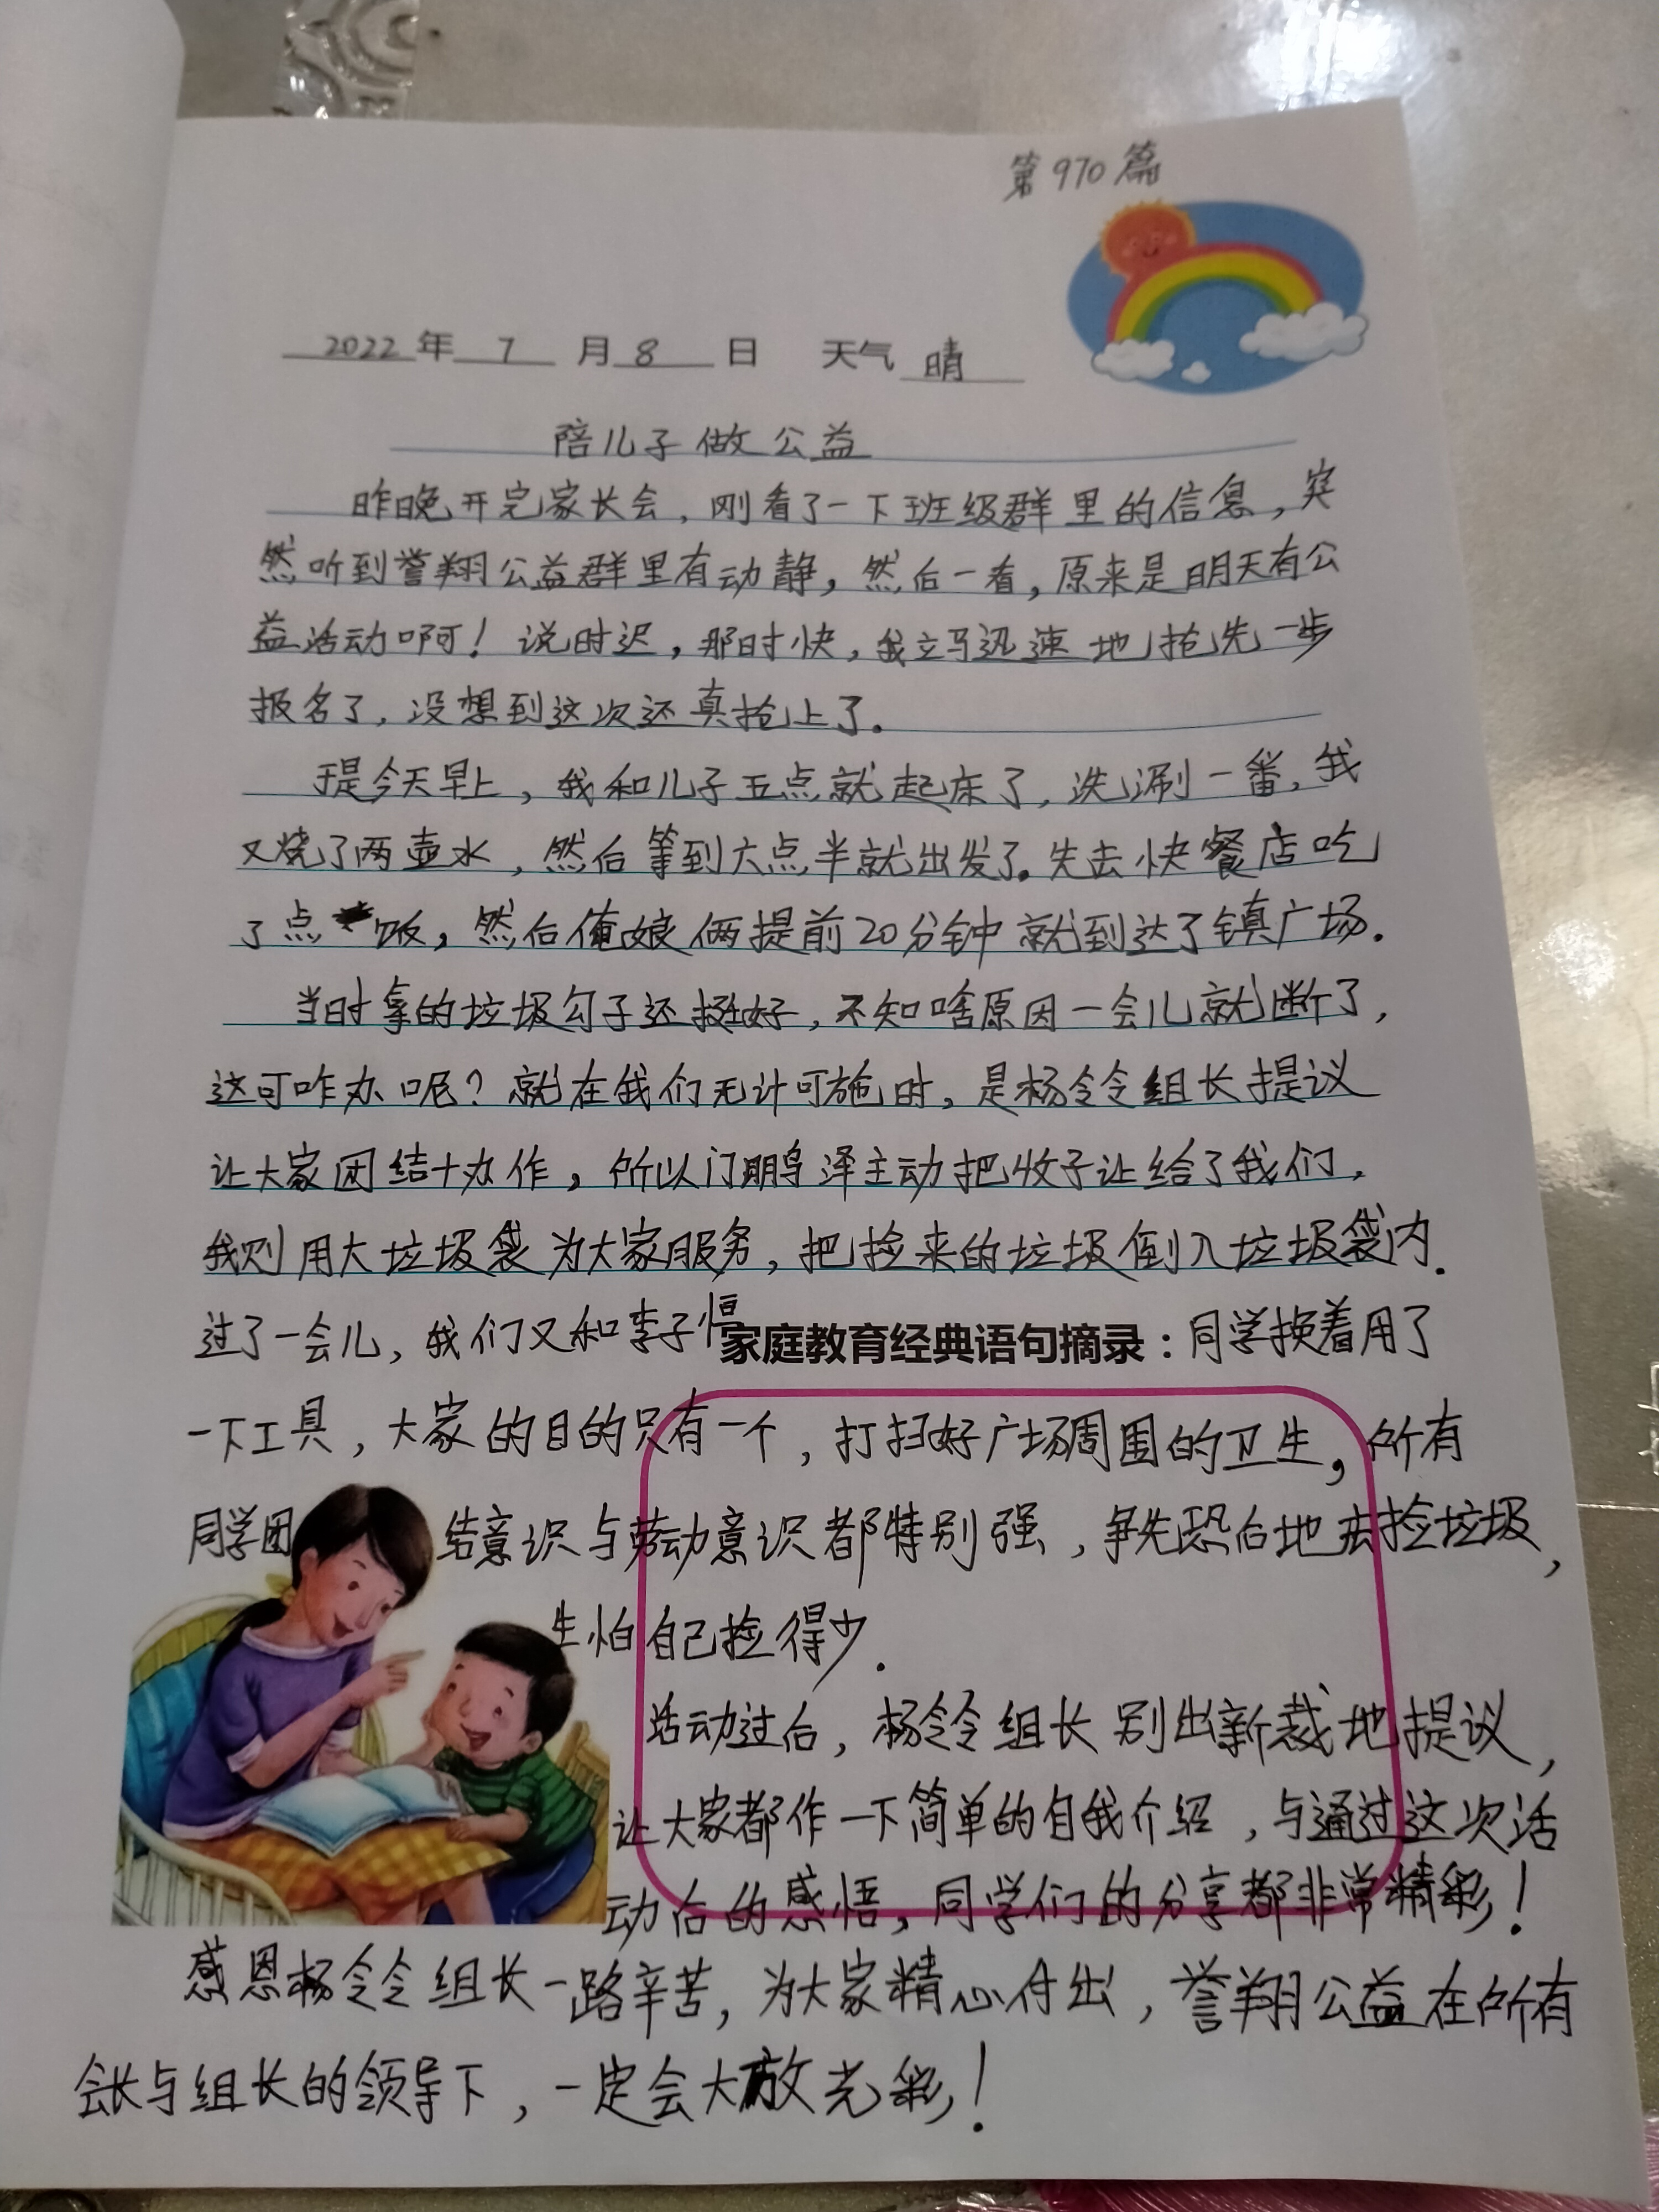 第970篇
2022年 7 月 8 日 天气 晴
陪儿子做公益
昨晚开完家长会，刚看了一下班级群里的信息，突
然听到誉翔公益群里有动静，然后一看，原来是明天有公
益活动啊！说时迟，那时快，我立马迅速地抢先一步
报名了，没想到这次还真抢上了。
于是今天早上，我和儿子五点就起床了，洗涮一番，我
又烧了两壶水，然后等到六点半就出发了。先去快餐店吃
了点饭，然后俺娘俩提前20分钟就到达了镇广场.
当时拿的垃圾勾子还挺好，不知啥原因一会儿就断了，
这可咋办呢？就在我们无计可施时，是杨令令组长提议
让大家团结十办作，所以门鹏泽主动把收子让给了我们，
我则用大垃圾袋为大家服务，把捡来的垃圾倒入垃圾袋内.
过了一会儿，我们又和李子恒
家庭教育经典语句摘录：
同学换着用了
一下工具，大家的目的只有一个，打扫好广场周围的卫生，所有
同学团结意识与劳动意识都特别强，争先恐后地去捡垃圾，
生怕自己捡得少.
活动过后，杨令令组长别出新裁地提议，
让大家都作一下简单的自我介绍，与通过这次活
动后的感悟，同学们的分享都非常精彩！
感恩杨令令组长一路辛苦，为大家精心付出，誉翔公益在所有
会长与组长的领导下，一定会大放光彩！